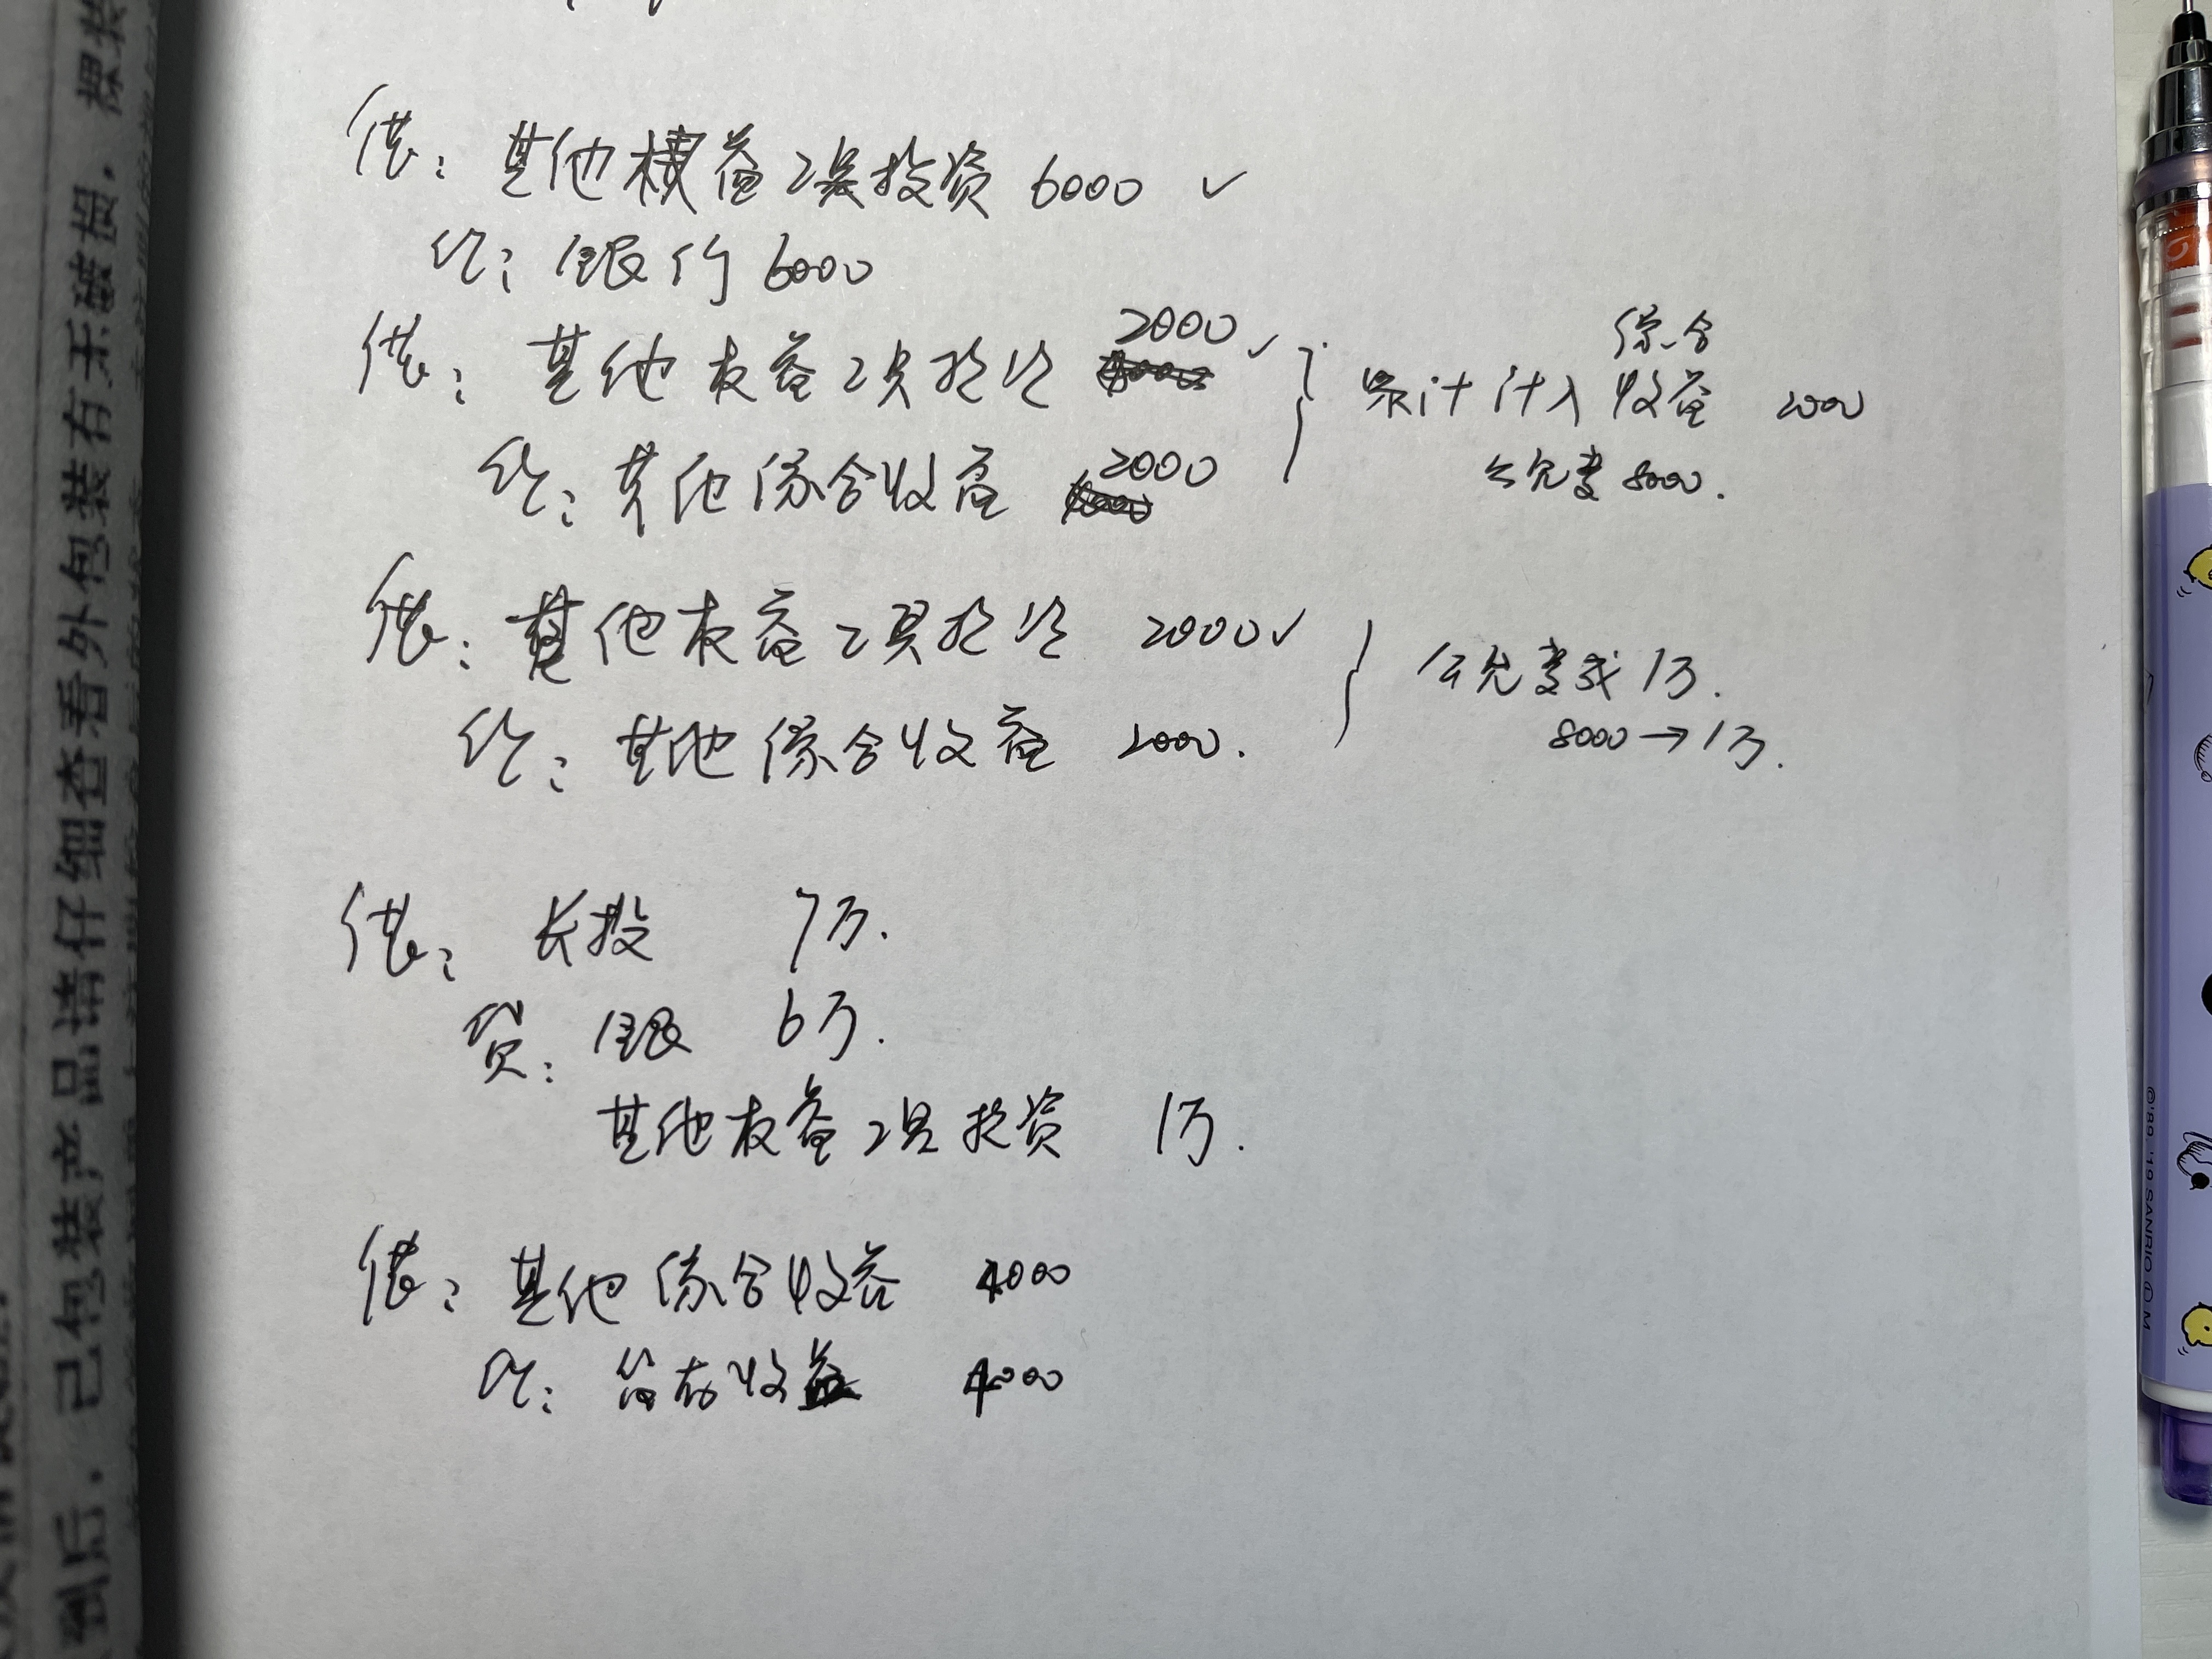 到后，已包装产品请仔细查看外包装有无破损，裸装
借：其他权益工具投资 6000 ✓
贷：银行 6000
借：其他权益工具投资 2000 ✓
贷：其他综合收益 2000
累计计入综合收益 2000
公允变 8000.
借：其他权益工具投资 2000 ✓
贷：其他综合收益 2000.
公允变成1万.
8000→1万.
借：长投 7万.
贷：银 6万.
其他权益工具投资 1万.
借：其他综合收益 4000
贷：留存收益 4000
©'89, '19 SANRIO Ⓛ M